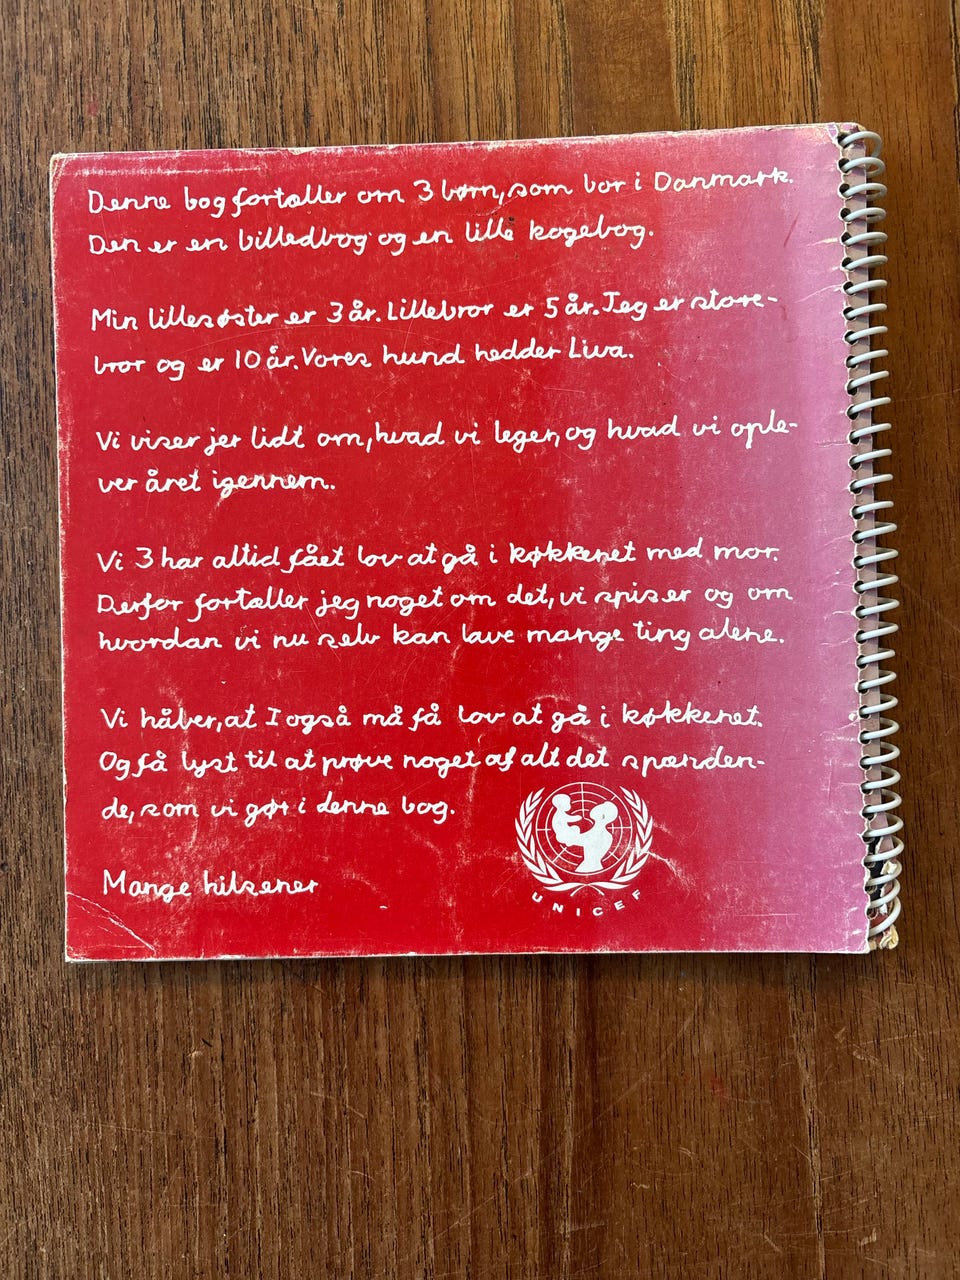 Denne bog fortæller om 3 børn, som bor i Danmark.
Den er en billedbog og en lille kogebog.
Min lillesøster er 3 år. Lillebror er 5 år. Jeg er store-
bror og er 10 år. Vores hund hedder Liwa.
Vi viser jer lidt om, hvad vi leger, og hvad vi ople-
ver året igennem.
Vi 3 har altid fået lov at gå i køkkenet med mor.
Derfor fortæller jeg noget om det, vi spiser og om
hvordan vi nu selv kan lave mange ting alene.
Vi håber, at I også må få lov at gå i køkkenet.
Og få lyst til at prøve noget af alt det spænden-
de, som vi gør i denne bog.
Mange hilsener
UNICEF